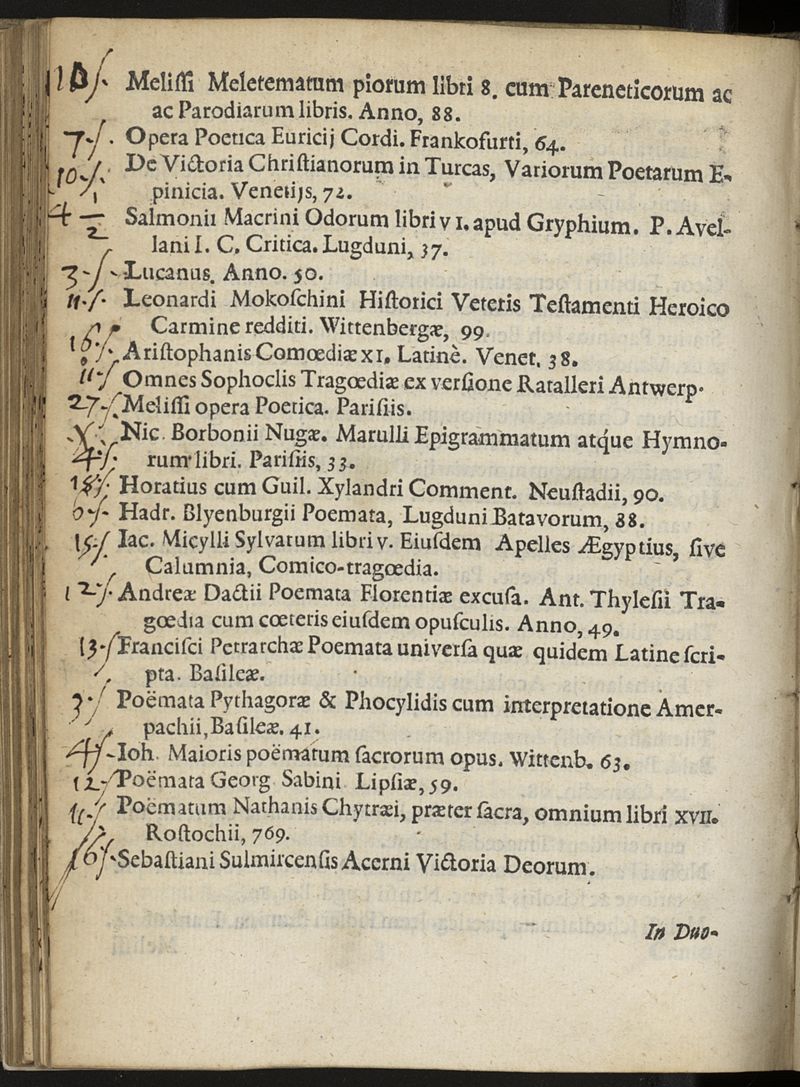 Meliſſi Meletematum piorum libri 8. cum Pareneticorum ac
ac Parodiarum libris. Anno, 88.
7-ſ. Opera Poetica Euricij Cordi. Frankofurti, 64.
10-ſ. De Victoria Chriſtianorum in Turcas, Variorum Poetarum E-
pinicia. Venetijs, 72.
4 Salmonii Macrini Odorum libri VI. apud Gryphium. P. Avel-
lani I. C. Critica. Lugduni, 37.
3-ſ Lucanus. Anno. 50.
11-ſ. Leonardi Mokoſchini Hiſtorici Veteris Teſtamenti Heroico
Carmine redditi. Wittenbergæ, 99.
Ariſtophanis Comœdiæ XI. Latinè. Venet. 38.
11-ſ Omnes Sophoclis Tragœdiæ ex verſione Ratalleri Antwerp.
27-ſ. Meliſſi opera Poetica. Pariſiis.
Nic. Borbonii Nugæ. Marulli Epigrammatum atque Hymno-
rum libri. Pariſiis, 33.
Horatius cum Guil. Xylandri Comment. Neuſtadii, 90.
6-ſ- Hadr. Blyenburgii Poemata, Lugduni Batavorum, 88.
15-ſ Iac. Micylli Sylvarum libri V. Eiuſdem Apelles Ægyptius, ſive
Calumnia, Comico-tragœdia.
12-ſ. Andreæ Dactii Poemata Florentiæ excuſa. Ant. Thyleſii Tra-
gœdia cum cœteris eiuſdem opuſculis. Anno, 49.
13-ſ Franciſci Petrarchæ Poemata univerſa quæ quidem Latine ſcri-
pta. Baſileæ.
3-ſ Poëmata Pythagoræ & Phocylidis cum interpretatione Amer-
pachii, Baſileæ. 41.
4ſ- Ioh. Maioris poëmatum ſacrorum opus. Wittenb. 63.
12-ſ Poëmata Georg Sabini Lipſiæ, 59.
Poëmatum Nathanis Chytræi, præter ſacra, omnium libri XVII.
Roſtochii, 769.
Sebaſtiani Sulmircenſis Acerni Victoria Deorum.
In Duo-